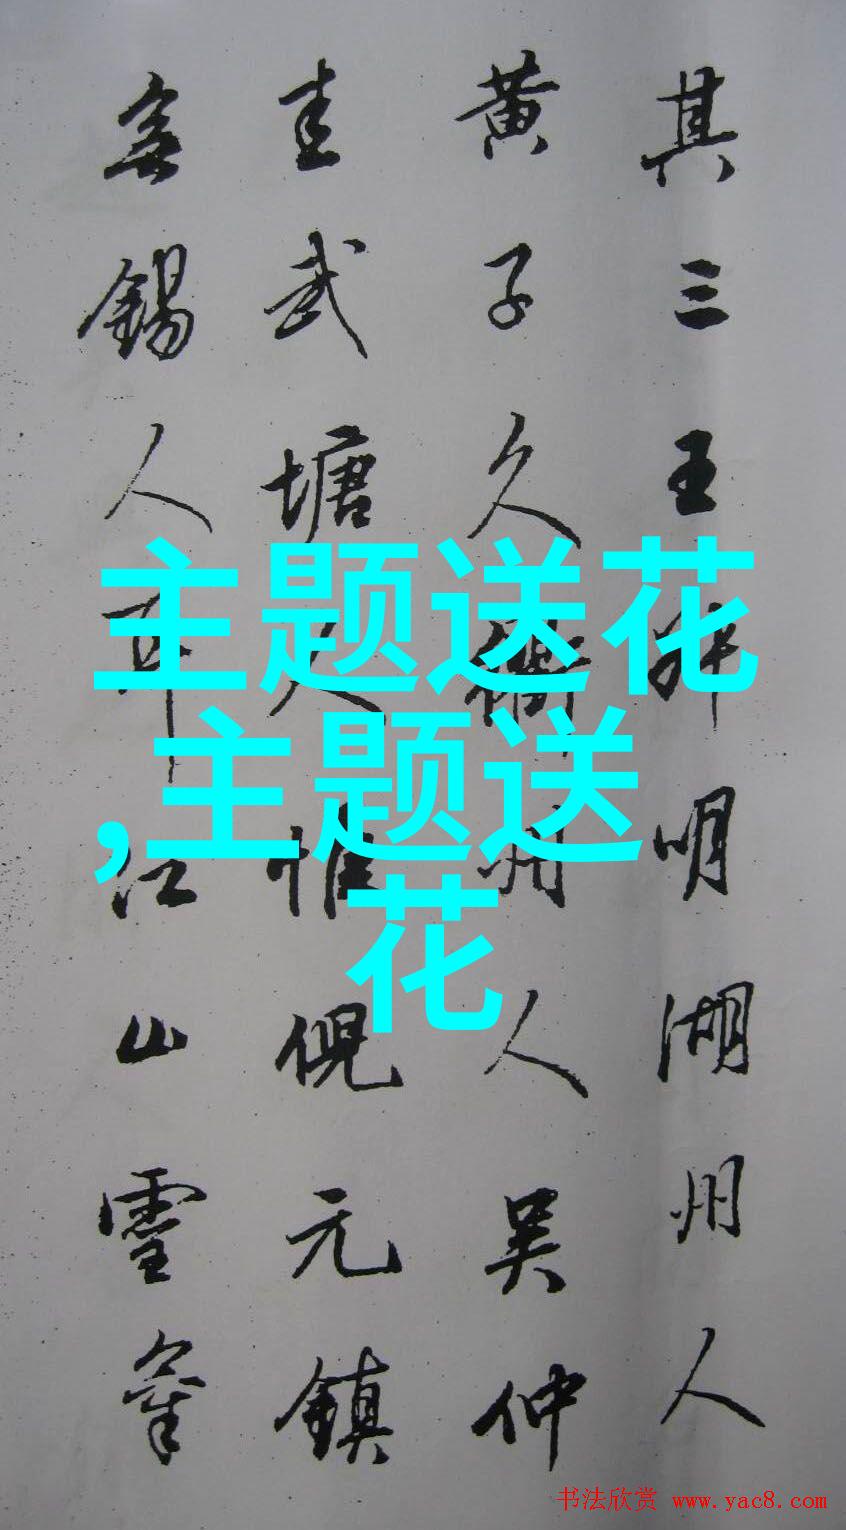 其三王叔明湖州人
黄子久衢州人吴仲
圭武塘人惟倪元鎮
無錫人耳江山靈氣
主题送花
,主题送
花
书法欣赏 www.yac8.com